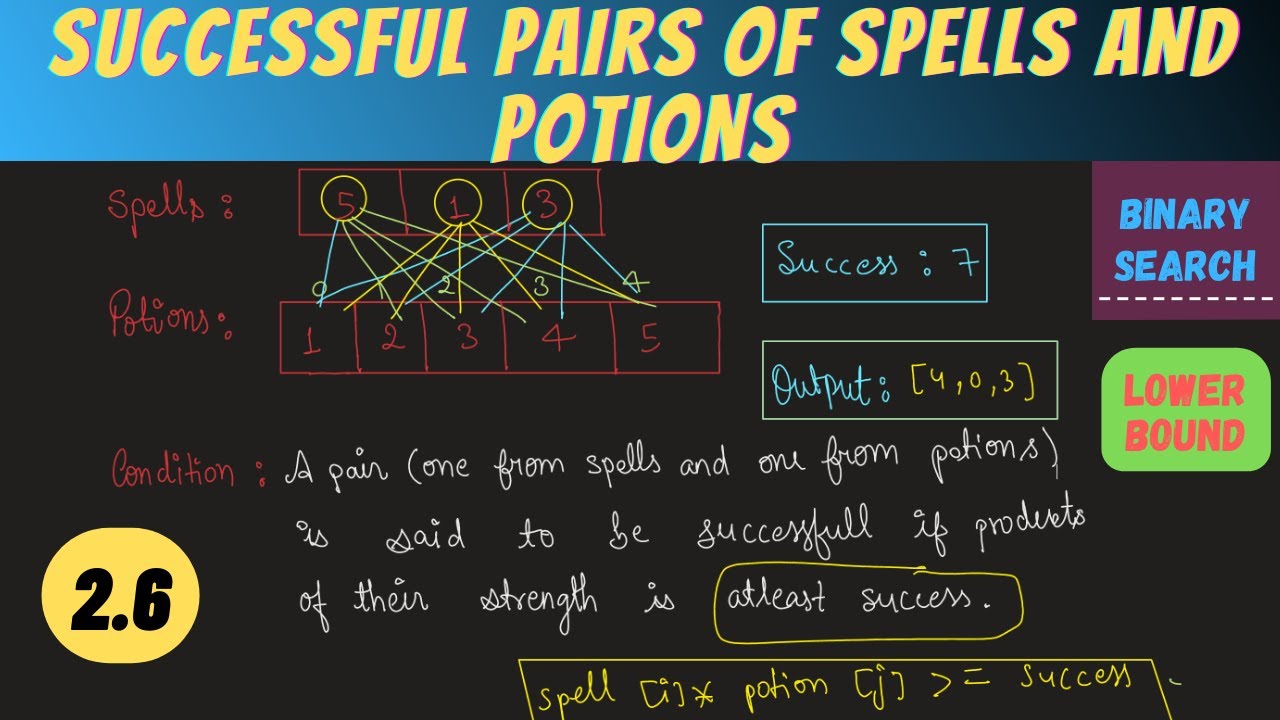 SUCCESSFUL PAIRS OF SPELLS AND
POTIONS
Spells: 5 1 3
BINARY
SEARCH
Success: 7
0 1 2 3 4
Potions: 1 2 3 4 5
Output: [4,0,3]
LOWER
BOUND
Condition: A pair (one from spells and one from potions)
is said to be successfull if products
of their strength is atleast success.
2.6
spell [i]* potion [j] >= success